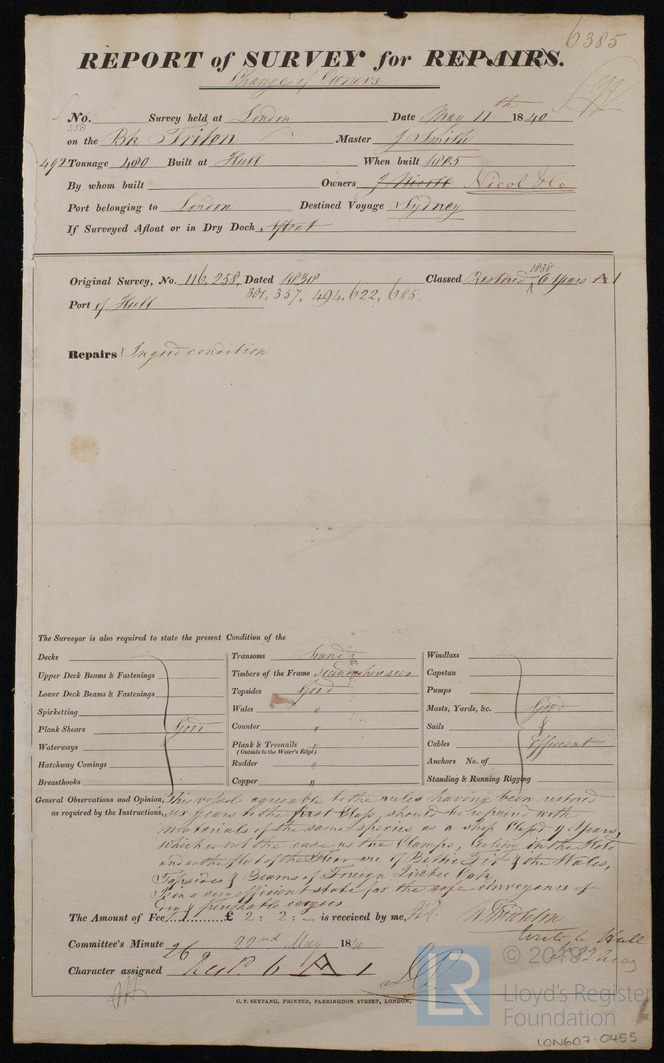 6385
REPORT of SURVEY for REPAIRS.
Change of Owners
No. Survey held at London Date May 11th 1840
338
on the Bk Triton Master J Smith
492 Tonnage 480 Built at Hull When built 1805
By whom built Owners J Nicoll Nicol & Co
Port belonging to London Destined Voyage Sydney
If Surveyed Afloat or in Dry Dock Afloat
Original Survey, No. 116, 258, Dated 1838 Classed Restored 1838 6 Years A 1
Port of Hull 301, 357, 494, 622, 685.
Repairs In good condition
The Surveyor is also required to state the present Condition of the
Decks
Upper Deck Beams & Fastenings
Lower Deck Beams & Fastenings
Spirketting
Plank Shears Good
Waterways
Hatchway Comings
Breasthooks
Transoms Sound
Timbers of the Frame sound where seen
Topsides Good
Wales "
Counter "
Plank & Treenails "
(Outside to the Water's Edge)
Rudder "
Copper "
Windlass
Capstan
Pumps
Masts, Yards, &c. Good
Sails &
Cables Efficient
Anchors No. of
Standing & Running Rigging
General Observations and Opinion, This vessel agreeable to the rules having been restored
as required by the Instructions, six years to the first Class, should be repaired with
materials of the same species as a Ship Class'd 9 Years,
which is not the case as the Clamps, Ceiling in the Hold
and in the flat of the are of Baltic Fir & the Wales,
Topsides & Beams of Foreign Oak,
Is in a very efficient state for the safe conveyance of
Dry & perishable cargoes
The Amount of Fee £ 2: 2: - is received by me,
Committee's Minute 26 22nd May 1840
Write to Hull
Character assigned 6 A 1
C. F. SEYFANG, PRINTER, FARRINGDON STREET, LONDON.
LR
© 2019
Lloyd's Register
Foundation
LON607-0455